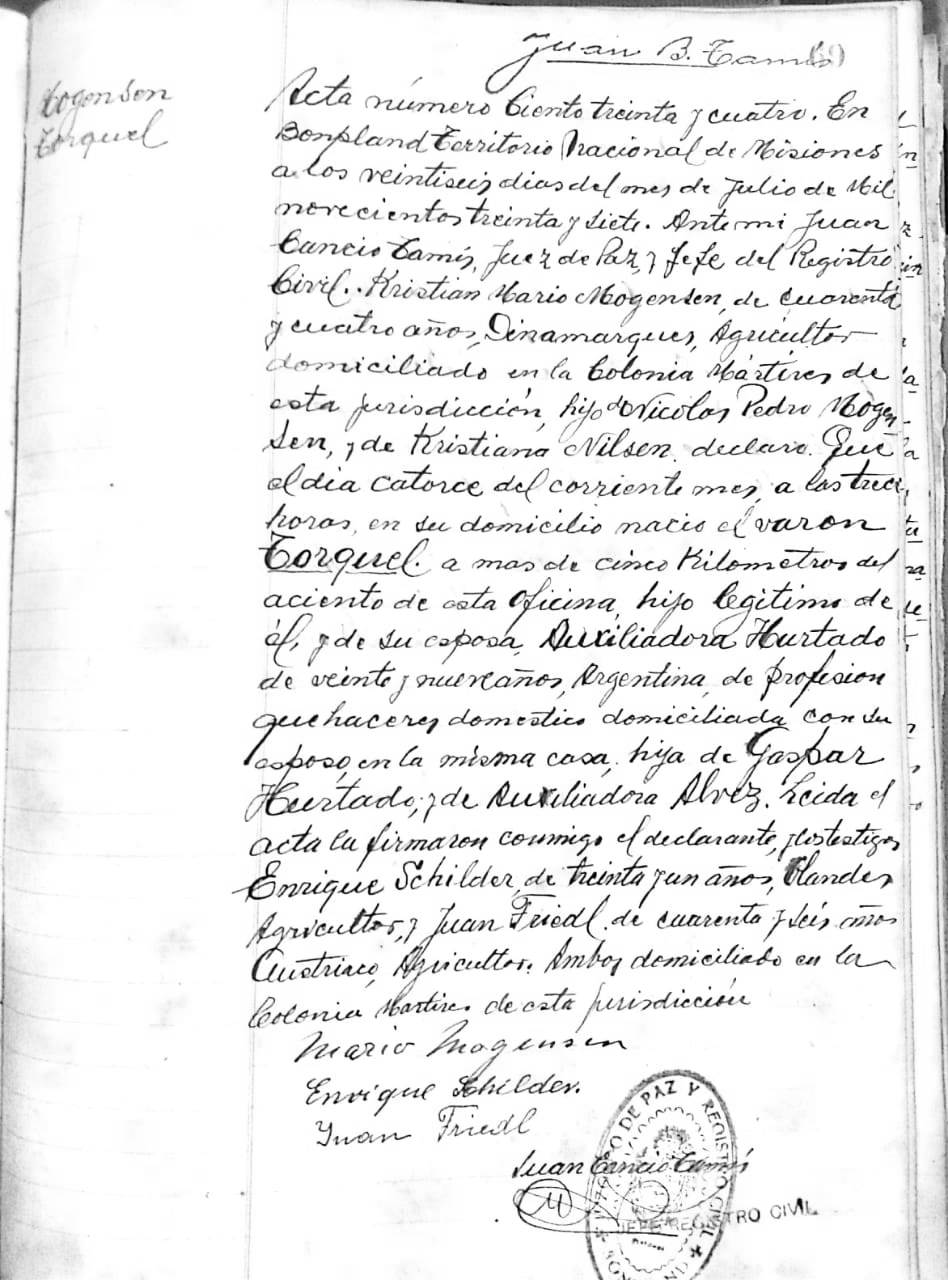 Juan B. Tamis
69
Mogensen
Torquel
Acta número Ciento treinta y cuatro. En
Bonpland Territorio Nacional de Misiones
a los veintiseis dias del mes de Julio de Mil
novecientos treinta y siete. Ante mi Juan
Cancio Tamis, Juez de Paz, y Jefe del Registro
Civil. Kristian Mario Mogensen, de cuarenta
y cuatro años, Dinamarques, Agricultor
domiciliado en la Colonia Mártires de
esta jurisdicción, hijo de Nicolas Pedro Mogen
sen, y de Kristiana Nilsen. declaro. Que
el dia catorce del corriente mes, a las trece
horas, en su domicilio nacio el varon
Torquel. a mas de cinco Kilometros del
aciento de esta Oficina, hijo legitimo de
él, y de su esposa, Auxiliadora Hurtado
de veinte y nueve años, Argentina, de profesion
quehaceres domestico domiciliada con su
esposo, en la misma casa, hija de Gaspar
Hurtado, y de Auxiliadora Alvez. Leida el
acta la firmaron conmigo el declarante, y los testigos
Enrique Schilder, de treinta y un años, Olandes
Agricultor, y Juan Friedl. de cuarenta y seis años
Austriaco, Agricultor. Ambos domiciliado en la
Colonia Martires de esta jurisdicción
Mario Mogensen
Enrique Schilder.
Juan Friedl
Juan Cancio Tamis
JUZGADO DE PAZ Y REGISTRO CIVIL
JEFE REGISTRO CIVIL